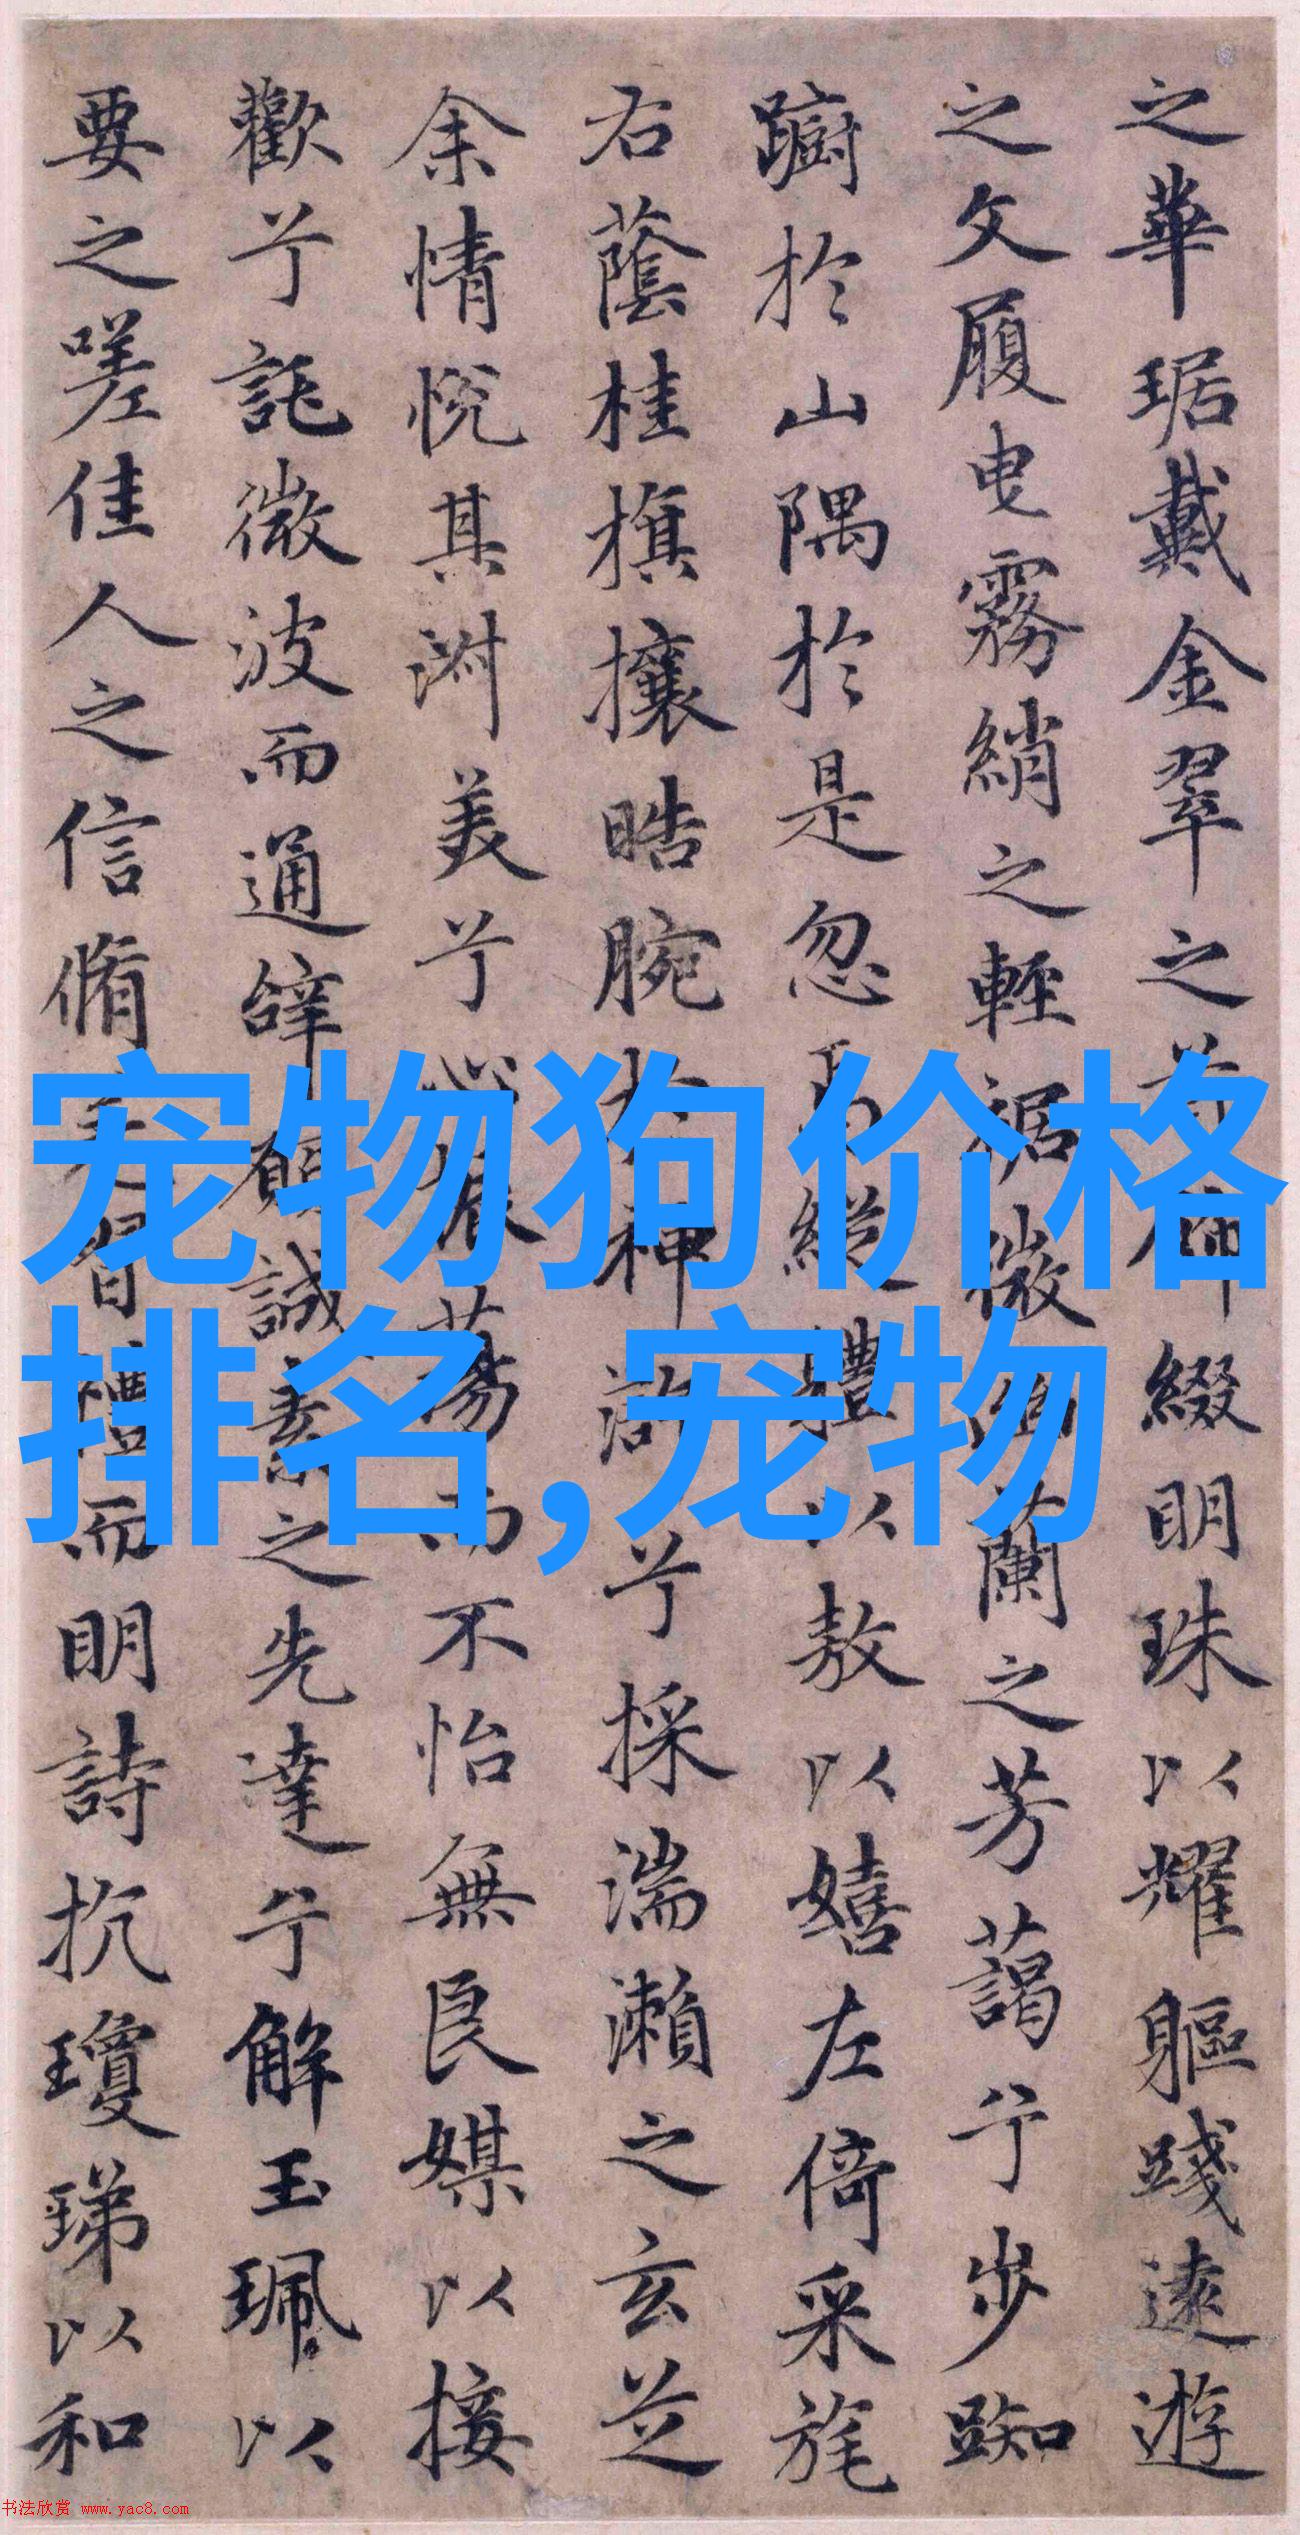 之華琚戴金翠之首飾綴明珠以耀軀踐遠遊
之文履曳霧綃之輕裾微幽蘭之芳藹兮步踟
躕於山隅於是忽焉縱體以敖以嬉左倚采旄
右蔭桂旗攘晧腕於神滸兮採湍瀨之玄芝
余情悅其淑美兮心振蕩而不怡無良媒以接
歡兮託微波而通辭願誠素之先達兮解玉珮以
要之嗟佳人之信脩羌習禮而明詩抗瓊珶以和
宠物狗价格
排名,宠物
书法欣赏 www.yac8.com